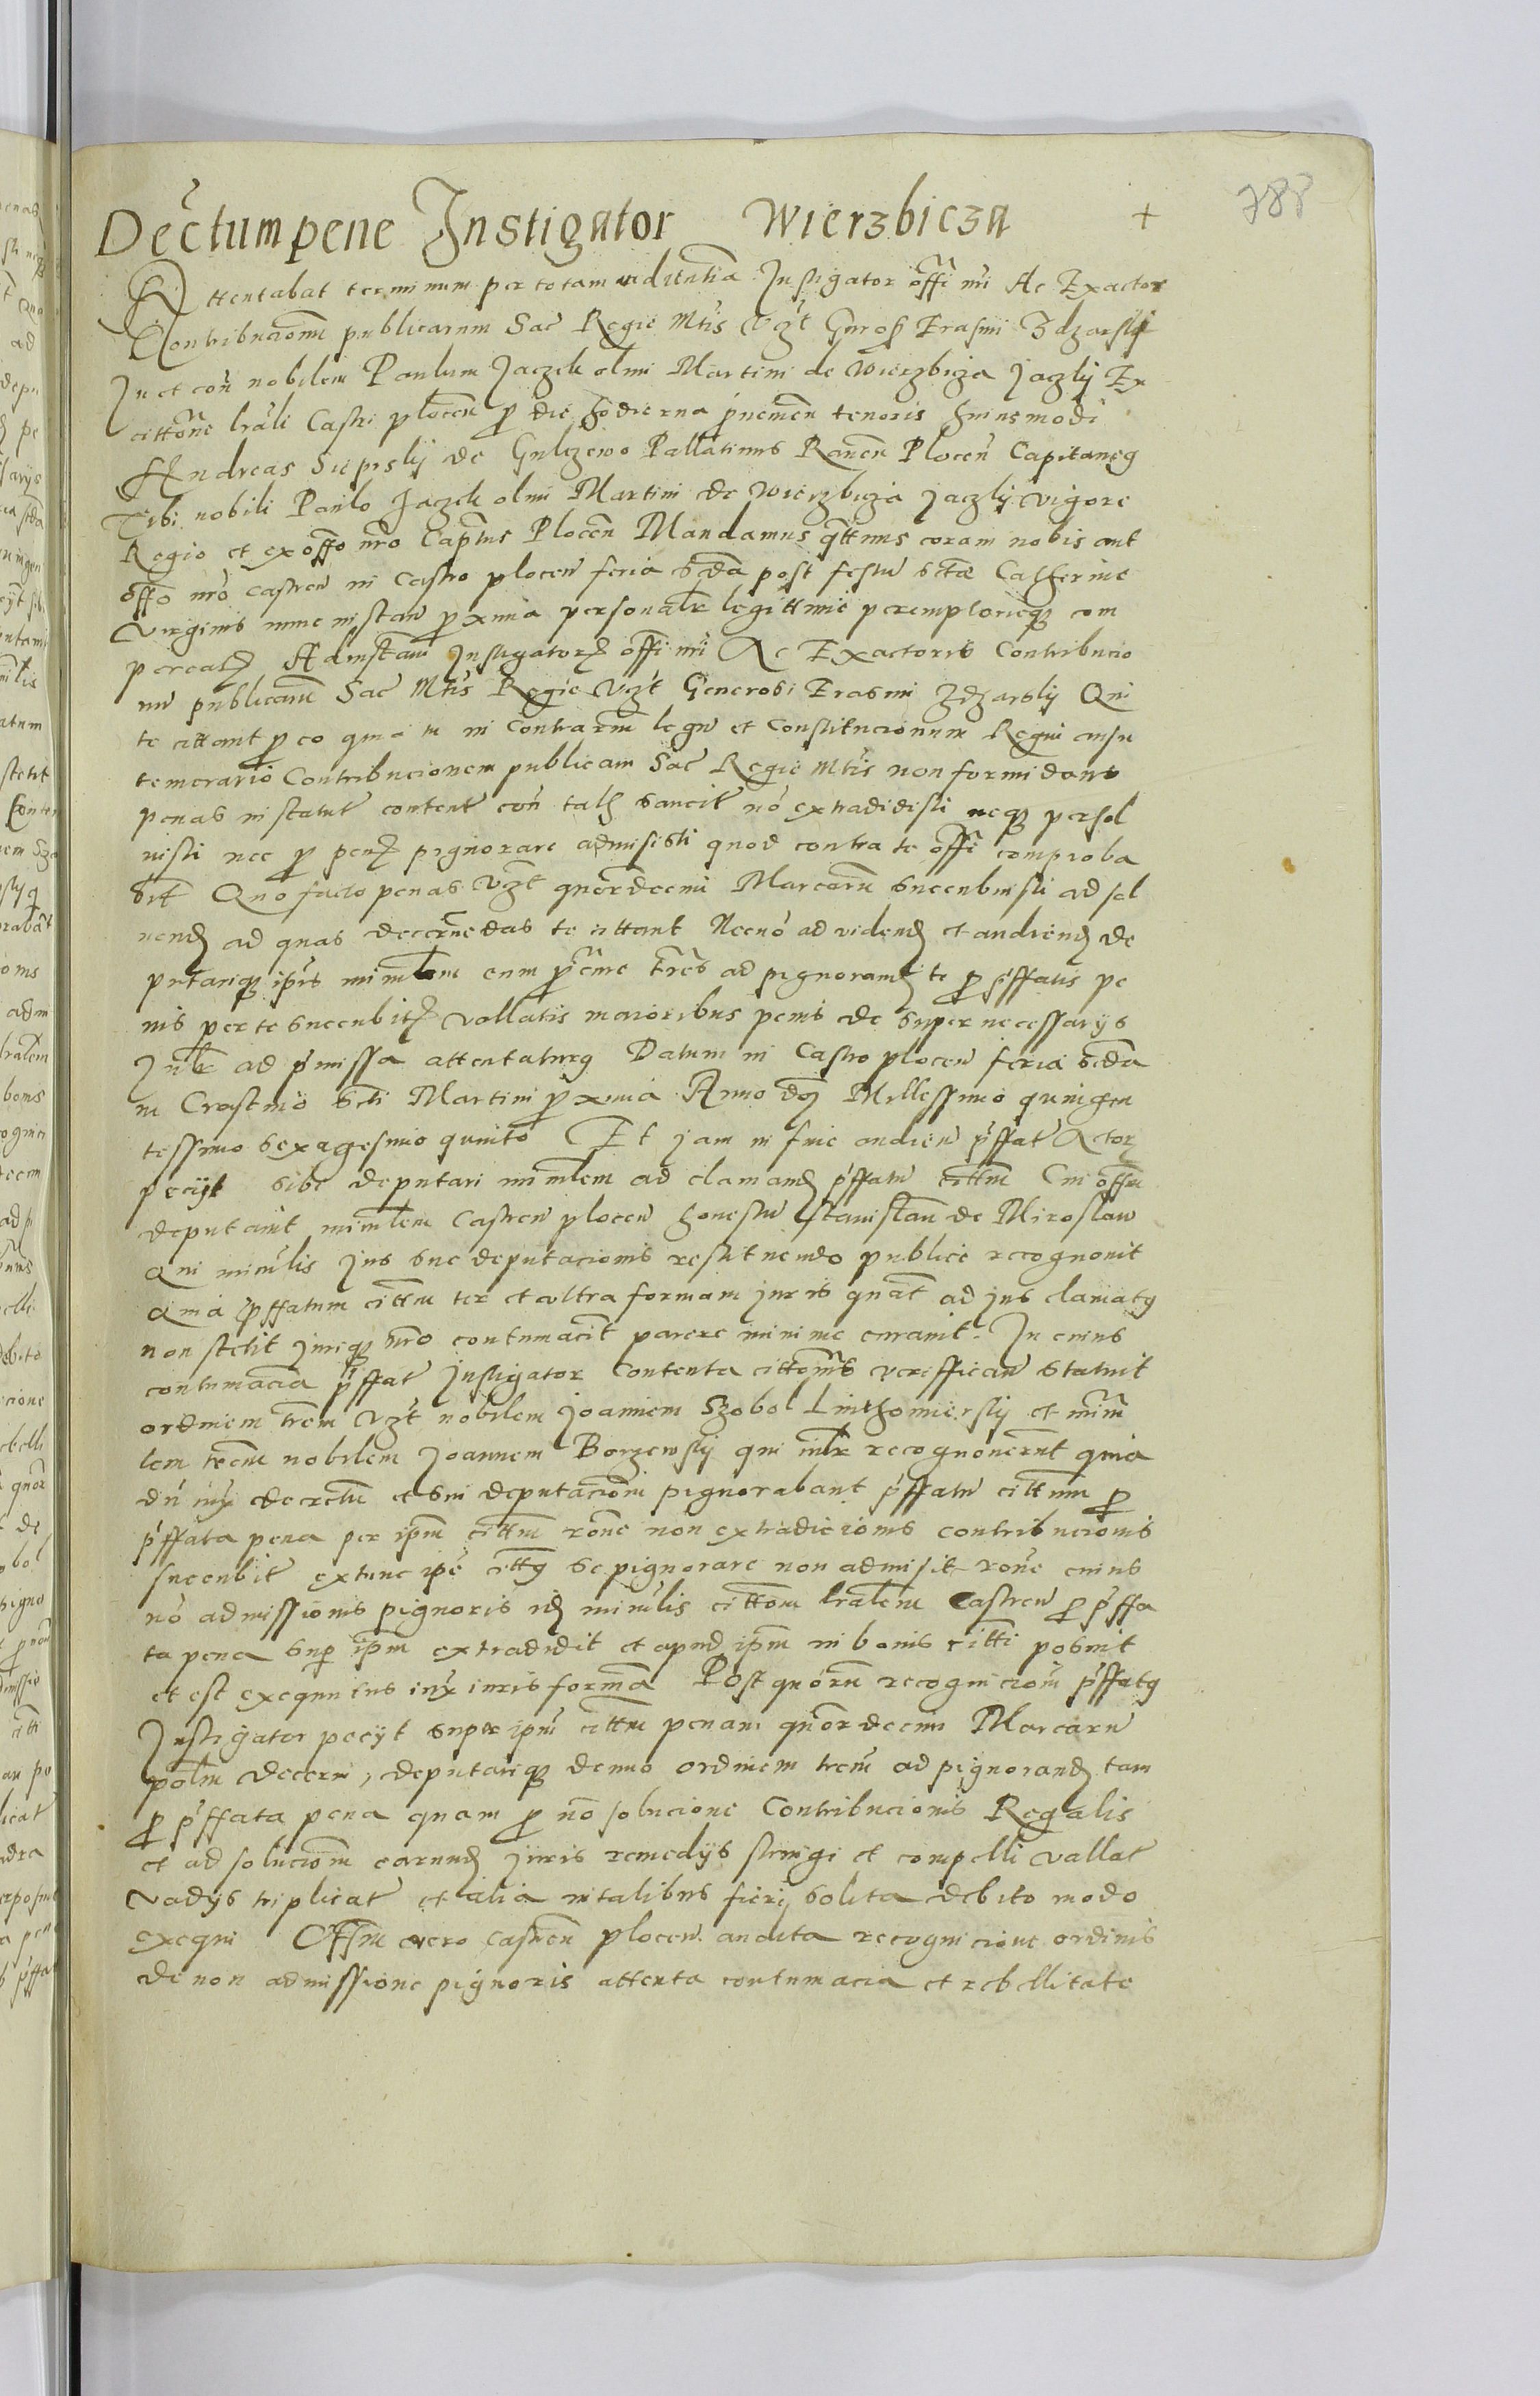 788
Dectum pene Instigator Wierzbicza +
Attentabat terminum per totam audientia Instigator offi nri Ac Exactor
Contribucionu publicarum Sac Regie Mtis Vzt Gnrosi Erasmi Zdzarskij
In et con nobilem Paulum Jaczek olmi Martini de Wierzbicza Jaczkij Ex
cittone lrali Castri plocen p die hodierna pnemen tenoris huiusmodi
Andreas Sieprskij de Gulczewo Pallatinus Raven Plocen Capitaneus
Tibi nobili Paulo Jaczek olmi Martini de Wierzbicza Jaczkij vigore
Regio et ex offo nro Captus Plocen Mandamus qttnus coram nobis aut
offo nro castren in Castro plocen feria scda post festu sctae Catherine
Virginis nunc instan pxima personalr legittimie peremptorieq com
pereas Ad instam Instigatoris offi nri Ac Exactoris Contribucio
nu publicaru Sac Mtis Regie Vzt Generosi Erasmi Zdzarskij Qui
te cittant p eo quia tu in contrariu legu et Constitucionum Regni ausu
temerario Contribucionem publicam Sac Regie Mtis non formidans
penas in statut content con tales sancit no extradidisti neq persol
visti nec p penis pignorare admisisti quod contra te offi comproba
bit Quo facto penas Vzt quordecim Marcaru succubuisti ad sol
vend ad quas decernedas te cittant Necno ad vidend et audiend de
putariq ipis minrlem cum pcme tres ad pignorand te p pffatis pe
nis per te succubitis vallatis maioribus penis de super necessarijs
Jnlr ad pmissa attentaturus Datum in Castro plocen feria scda
in Crastino Scti Martini pxima Anno dni Millessimo quingen
tessimo sexagesimo quinto Et jam in fine audien pffat Actor
pecijt sibi deputari minrlem ad clamand pffatu cittum Cui offm
deputavit minrlem Castren plocen honestu Stanislau de Miroslaw
Qui minrlis jus sue deputacionis restituendo publice recognovit
Quia pffatum cittum ter et ultra formam juris quat ad jus clamatus
non stetit juriq nro contumacit parere minime curavit. In cuius
contumacia pffat Instigator Contenta cittonis verifficans statuit
ordinem trem Vzt nobilem Joannem Szobol Luthomierskij et minr
lem trem nobilem Joannem Borzewskij qui inlr recognoverunt quia
du iux decretu et sui deputacione pignorabant pffatu cittum p
pffata pena per ipm cittm rone non extradicionis contribucionis
succubit extunc ipe cittus se pignorare non admisit rone cuius
no admissionis pignoris id minrlis cittom lralem Castren p pffa
ta pena sup ipm extradidit et apud ipm in bonis citti posuit
et est exequutus iux iuris forma Post quoru recognicione pffatus
Instigator pecijt super ipm cittm penam quordecim Marcaru
polm decerni, deputariq denuo ordinem trem ad pignorand tam
p pffata pena quam p no solucione Contribucionis Regalis
et ad solucione earund juris remedijs stringi et compelli vallat
vadijs triplicat et alia in talibus fieri solita debito modo
exequi Offm vero castren plocen audita recognicione ordinis
de non admissione pignoris attenta contumacia et rebellitate